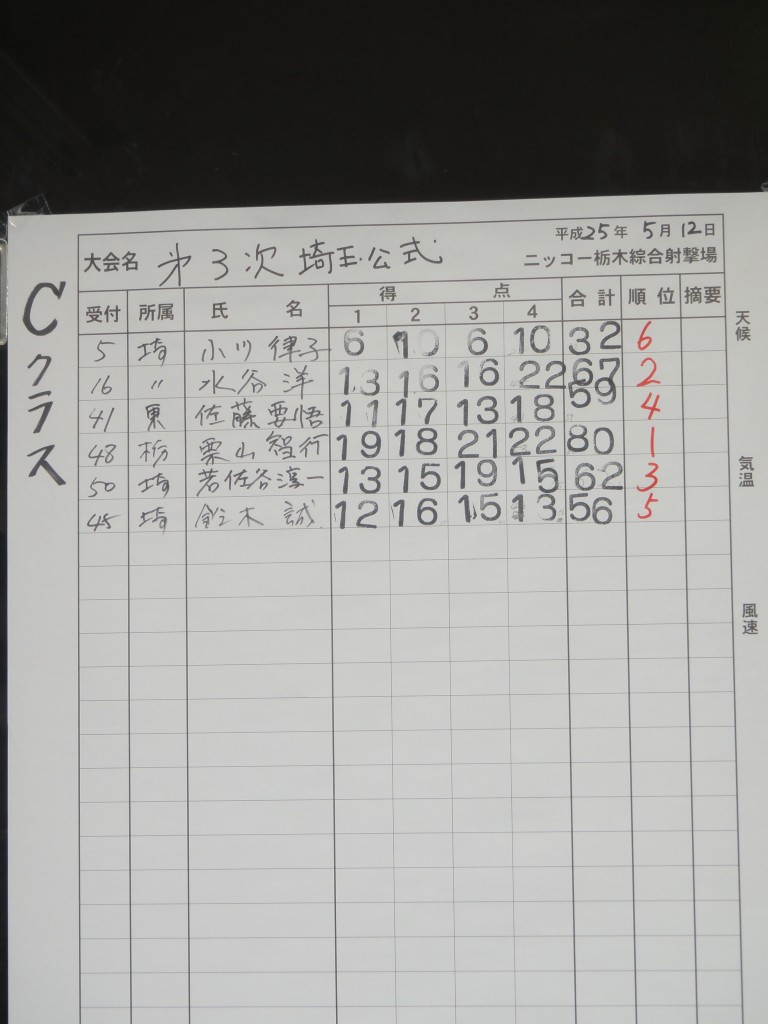 平成25年 5月12日
大会名 第3次 埼玉公式
ニッコー栃木綜合射撃場
Cクラス
受付 所属 氏 名 得 点 合計 順位 摘要
1 2 3 4
5 埼 小川 律子 6 10 6 10 32 6
16 〃 水谷 洋 13 16 16 22 67 2
41 東 佐藤要悟 11 17 13 18 59 4
48 栃 栗山智行 19 18 21 22 80 1
50 埼 若佐谷淳一 13 15 19 15 62 3
45 埼 鈴木 誠 12 16 15 13 56 5
天候
気温
風速